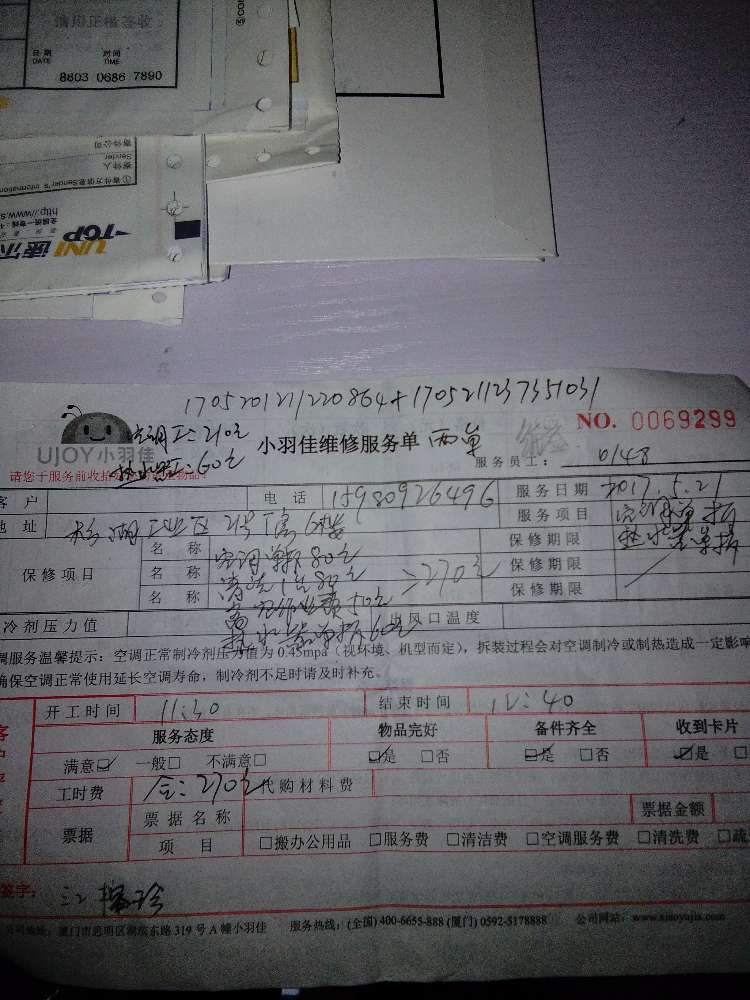 日期 时间
DATE TIME
8803 0686 7890
寄件公司
Sender
寄件人
①寄件方信息Sender's Information
http://www.s
UNI
TOP 速尔
170520121220864+170521123735 1031
空调工:210元
热水器工:60元
UJOY小羽佳
小羽佳维修服务单 两单
NO. 0069299
服务员工: 0148
请您于服务前收拾
客户 电话 15980926496 服务日期 2017.5.21
地址 工业区 6楼 服务项目 空调单拆
热水器单拆
保修项目
名称 空调单拆80元 保修期限
名称 清洗1台80元 =270元 保修期限
名称 50元 保修期限
热水器单拆60元
冷剂压力值 出风口温度
调服务温馨提示:空调正常制冷剂压力值为0.45mpa(视环境、机型而定),拆装过程会对空调制冷或制热造成一定影响
确保空调正常使用延长空调寿命,制冷剂不足时请及时补充。
开工时间 11:30 结束时间 12:40
服务态度 物品完好 备件齐全 收到卡片
满意☑ 一般□ 不满意□ ☑是 □否 ☑是 □否 ☑是 □
工时费 合:270元 代购材料费
票据 票据名称 票据金额
项目 □搬办公用品 □服务费 □清洁费 □空调服务费 □清洗费 □疏
签字: 江
公司地址:厦门市思明区湖滨东路 319 号 A 幢小羽佳 服务热线:(全国) 400-6655-888 (厦门) 0592-5178888 公司网站:www.xiaoyujia.com